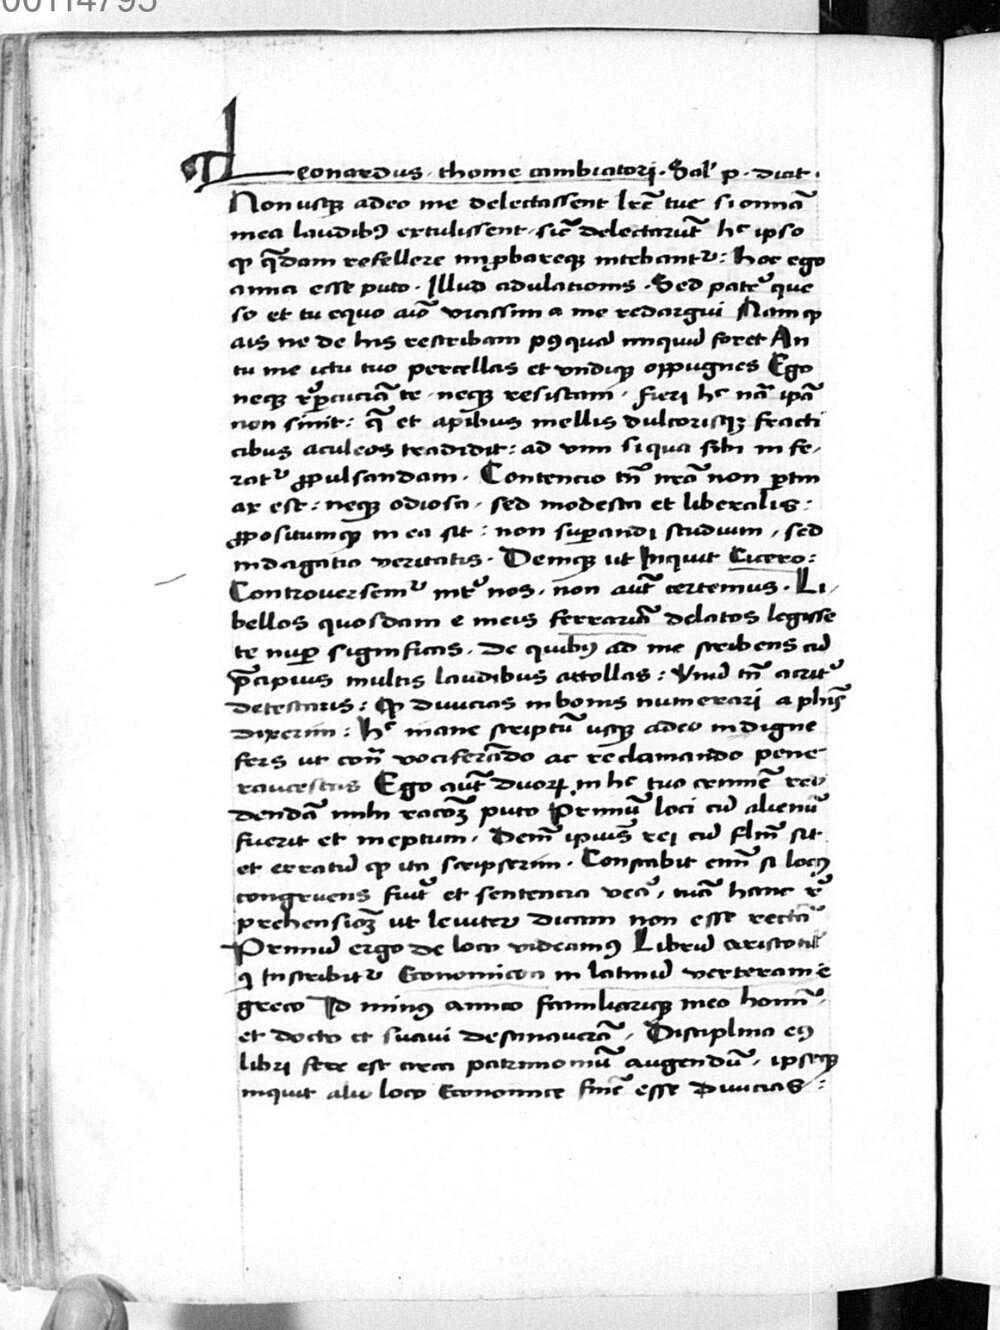 00114795
Leonardus · thome cambiatori · Sal' p · dicit ·
Non usq3 adeo me delectassent lrē tue si omnia
mea laudib9 extulissent · sic delectarūt he ipso
qp qdam refellere improbareq3 nitebantr : hoc ego
amici esse puto · Illud adulationis · Sed patere que
so et tu equo aīo vicissim a me redargui Nam qp
ais ne de his rescribam p9qua nunquid foret An
tu me ictu tuo percellas et undiq3 oppugnes Ego
neq3 repcuciā te · neq3 resistam · fieri hc nā ipā
non sinit : q et apibus mellis dulcorisq3 fructi
cibus aculeos tradidit : ad vim si qua sibi in fe,
ratr ppulsandam · Contencio tn nrā non ptin
ax est : neq3 odiosa · sed modesta et liberalis :
ppositumq3 in ea sit : non supandi studium, sed
indagatio veritatis · Deniq3 ut Inquit Cicero :
Controversemr int nos · non aut certemus · Li,
bellos quosdam e meis ferrariā delatos legisse
te nup significas · de quib9 ad me scribens cu
pcipuis multis laudibus attollas : Unu tn acrit
detestaris : qp divicias in bonis numerari a phis
dixerim : hc inane scriptu usq3 adeo indigne
fers ut con vociferādo ac reclamando pene
raucescas Ego aut duor in hc tuo crimine red
dendā mihi racoz puto Primu loci cu alienu
fuerit et ineptum · Dein ipius rei cu flm sit
et erratu qp ita scripserim · Constabit enim si loc9
congruens fuit et sentencia vera, tuā hanc re
prehensioz ut leviter dicam non esse rectā
Primu ergo de loco videam9 Libru aristotil
q Inscribitr Economicon in latinu verteram e
greco Id min9 amico familiariq3 meo homi
et docto et suavi destinaverā, Disciplina e9
libri fere est circa patrimoniu augendu, ipseq3
inquit alio loco Economice fine esse Divicias :